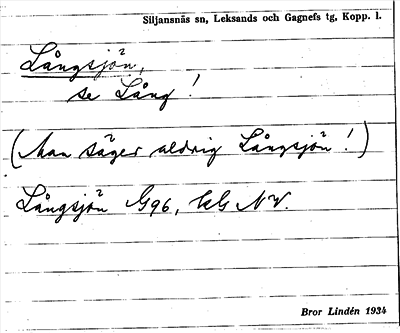 Siljansnäs sn, Leksands och Gagnefs tg, Kopp. l.
Långsjön,
se Lång!
(Man säger aldrig Långsjön!)
Långsjön G96, kG NV.
Bror Lindén 1934